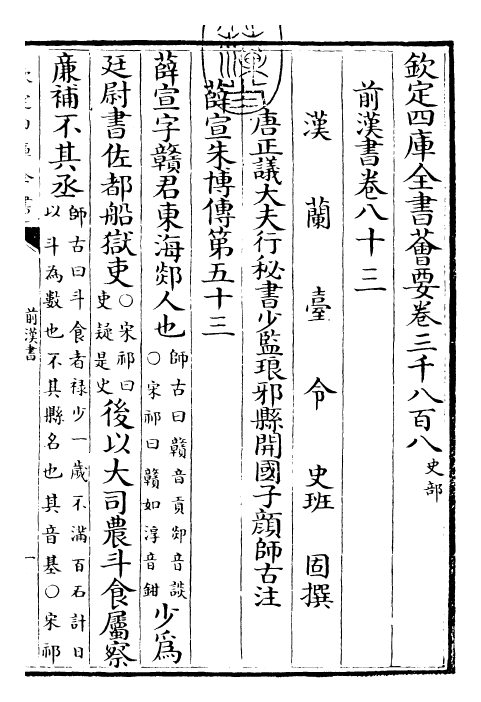 欽定四庫全書薈要卷三千八百八 史部
前漢書卷八十三
漢蘭臺令史班固撰
唐正議大夫行秘書少監琅邪縣開國子顏師古注
薛宣朱博傳第五十三
薛宣字贛君東海郯人也 師古曰贛音貢郯音談 ○宋祁曰贛如淳音鉗 少為
廷尉書佐都船獄吏 ○宋祁曰吏疑是史 後以大司農斗食屬察
廉補不其丞 師古曰斗食者禄少一歲不滿百石計日以斗為數也不其縣名也其音基○宋祁
前漢書
一